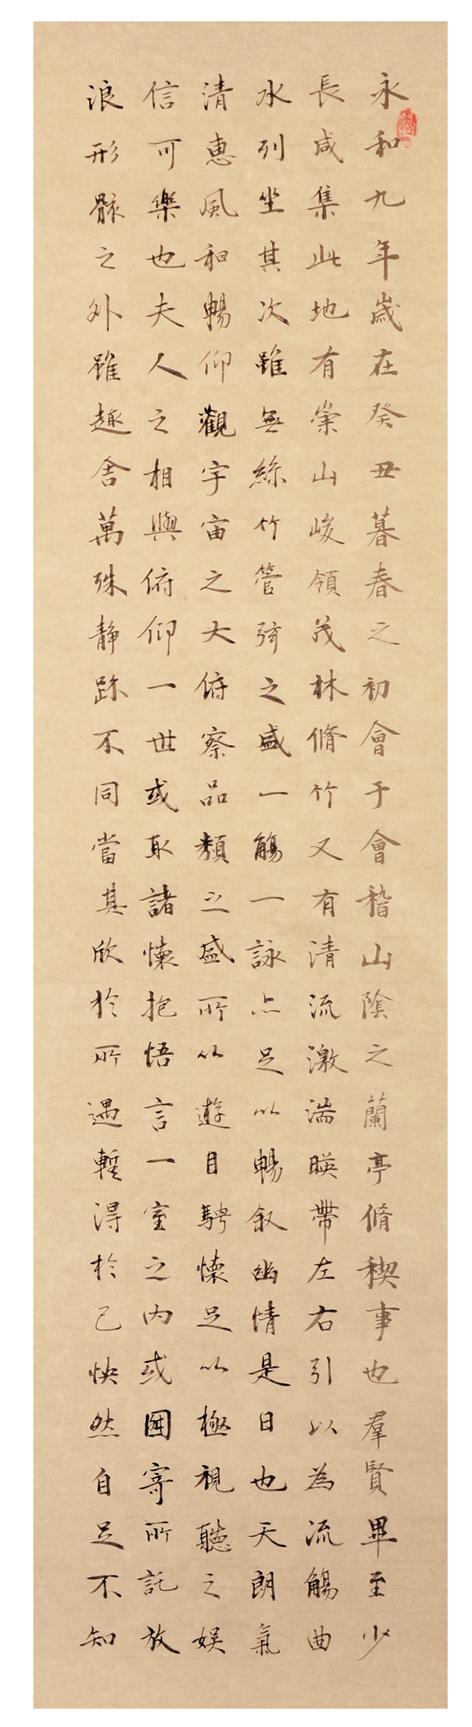 永和九年歲在癸丑暮春之初會于會稽山陰之蘭亭脩稧事也羣賢畢至少
長咸集此地有崇山峻領茂林脩竹又有清流激湍暎帶左右引以為流觴曲
水列坐其次雖無絲竹管弦之盛一觴一詠亦足以暢叙幽情是日也天朗氣
清惠風和暢仰觀宇宙之大俯察品類之盛所以遊目騁懷足以極視聽之娛
信可樂也夫人之相與俯仰一世或取諸懷抱悟言一室之內或因寄所託放
浪形骸之外雖趣舍萬殊靜躁不同當其欣於所遇暫得於己快然自足不知